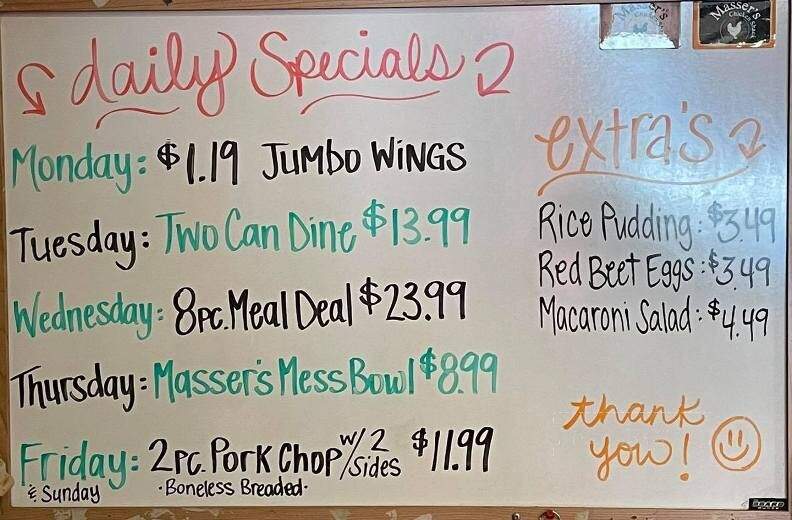 daily Specials
Monday: $1.19 Jumbo Wings
Tuesday: Two Can Dine $13.99
Wednesday: 8pc. Meal Deal $23.99
Thursday: Masser's Mess Bowl $8.99
Friday: 2pc. Pork Chop w/2 Sides $11.99
& Sunday · Boneless Breaded ·
extra's
Rice Pudding: $3.49
Red Beet Eggs: $3.49
Macaroni Salad: $4.49
thank
you!
Masser's
Masser's
Chicken